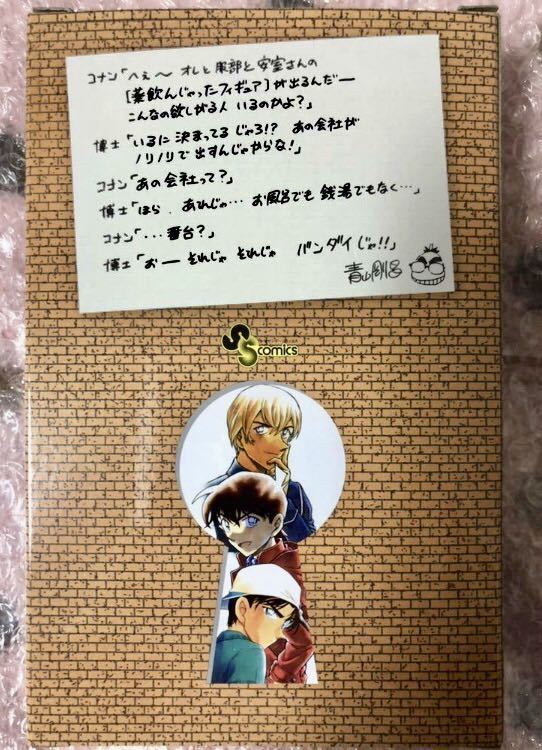 コナン「へぇ〜 オレと服部と安室さんの
[薬飲んじゃったフィギュア]が出るんだー
こんなの欲しがる人 いるのかよ?」
博士「いるに 決まってる じゃろ!? あの会社が
ノリノリで 出すんじゃからな!」
コナン「あの会社って?」
博士「ほら、あれじゃ… お風呂でも 銭湯でもなく…」
コナン「・・・番台?」
博士「おー それじゃ それじゃ バンダイじゃ!!」
青山剛昌
SS comics